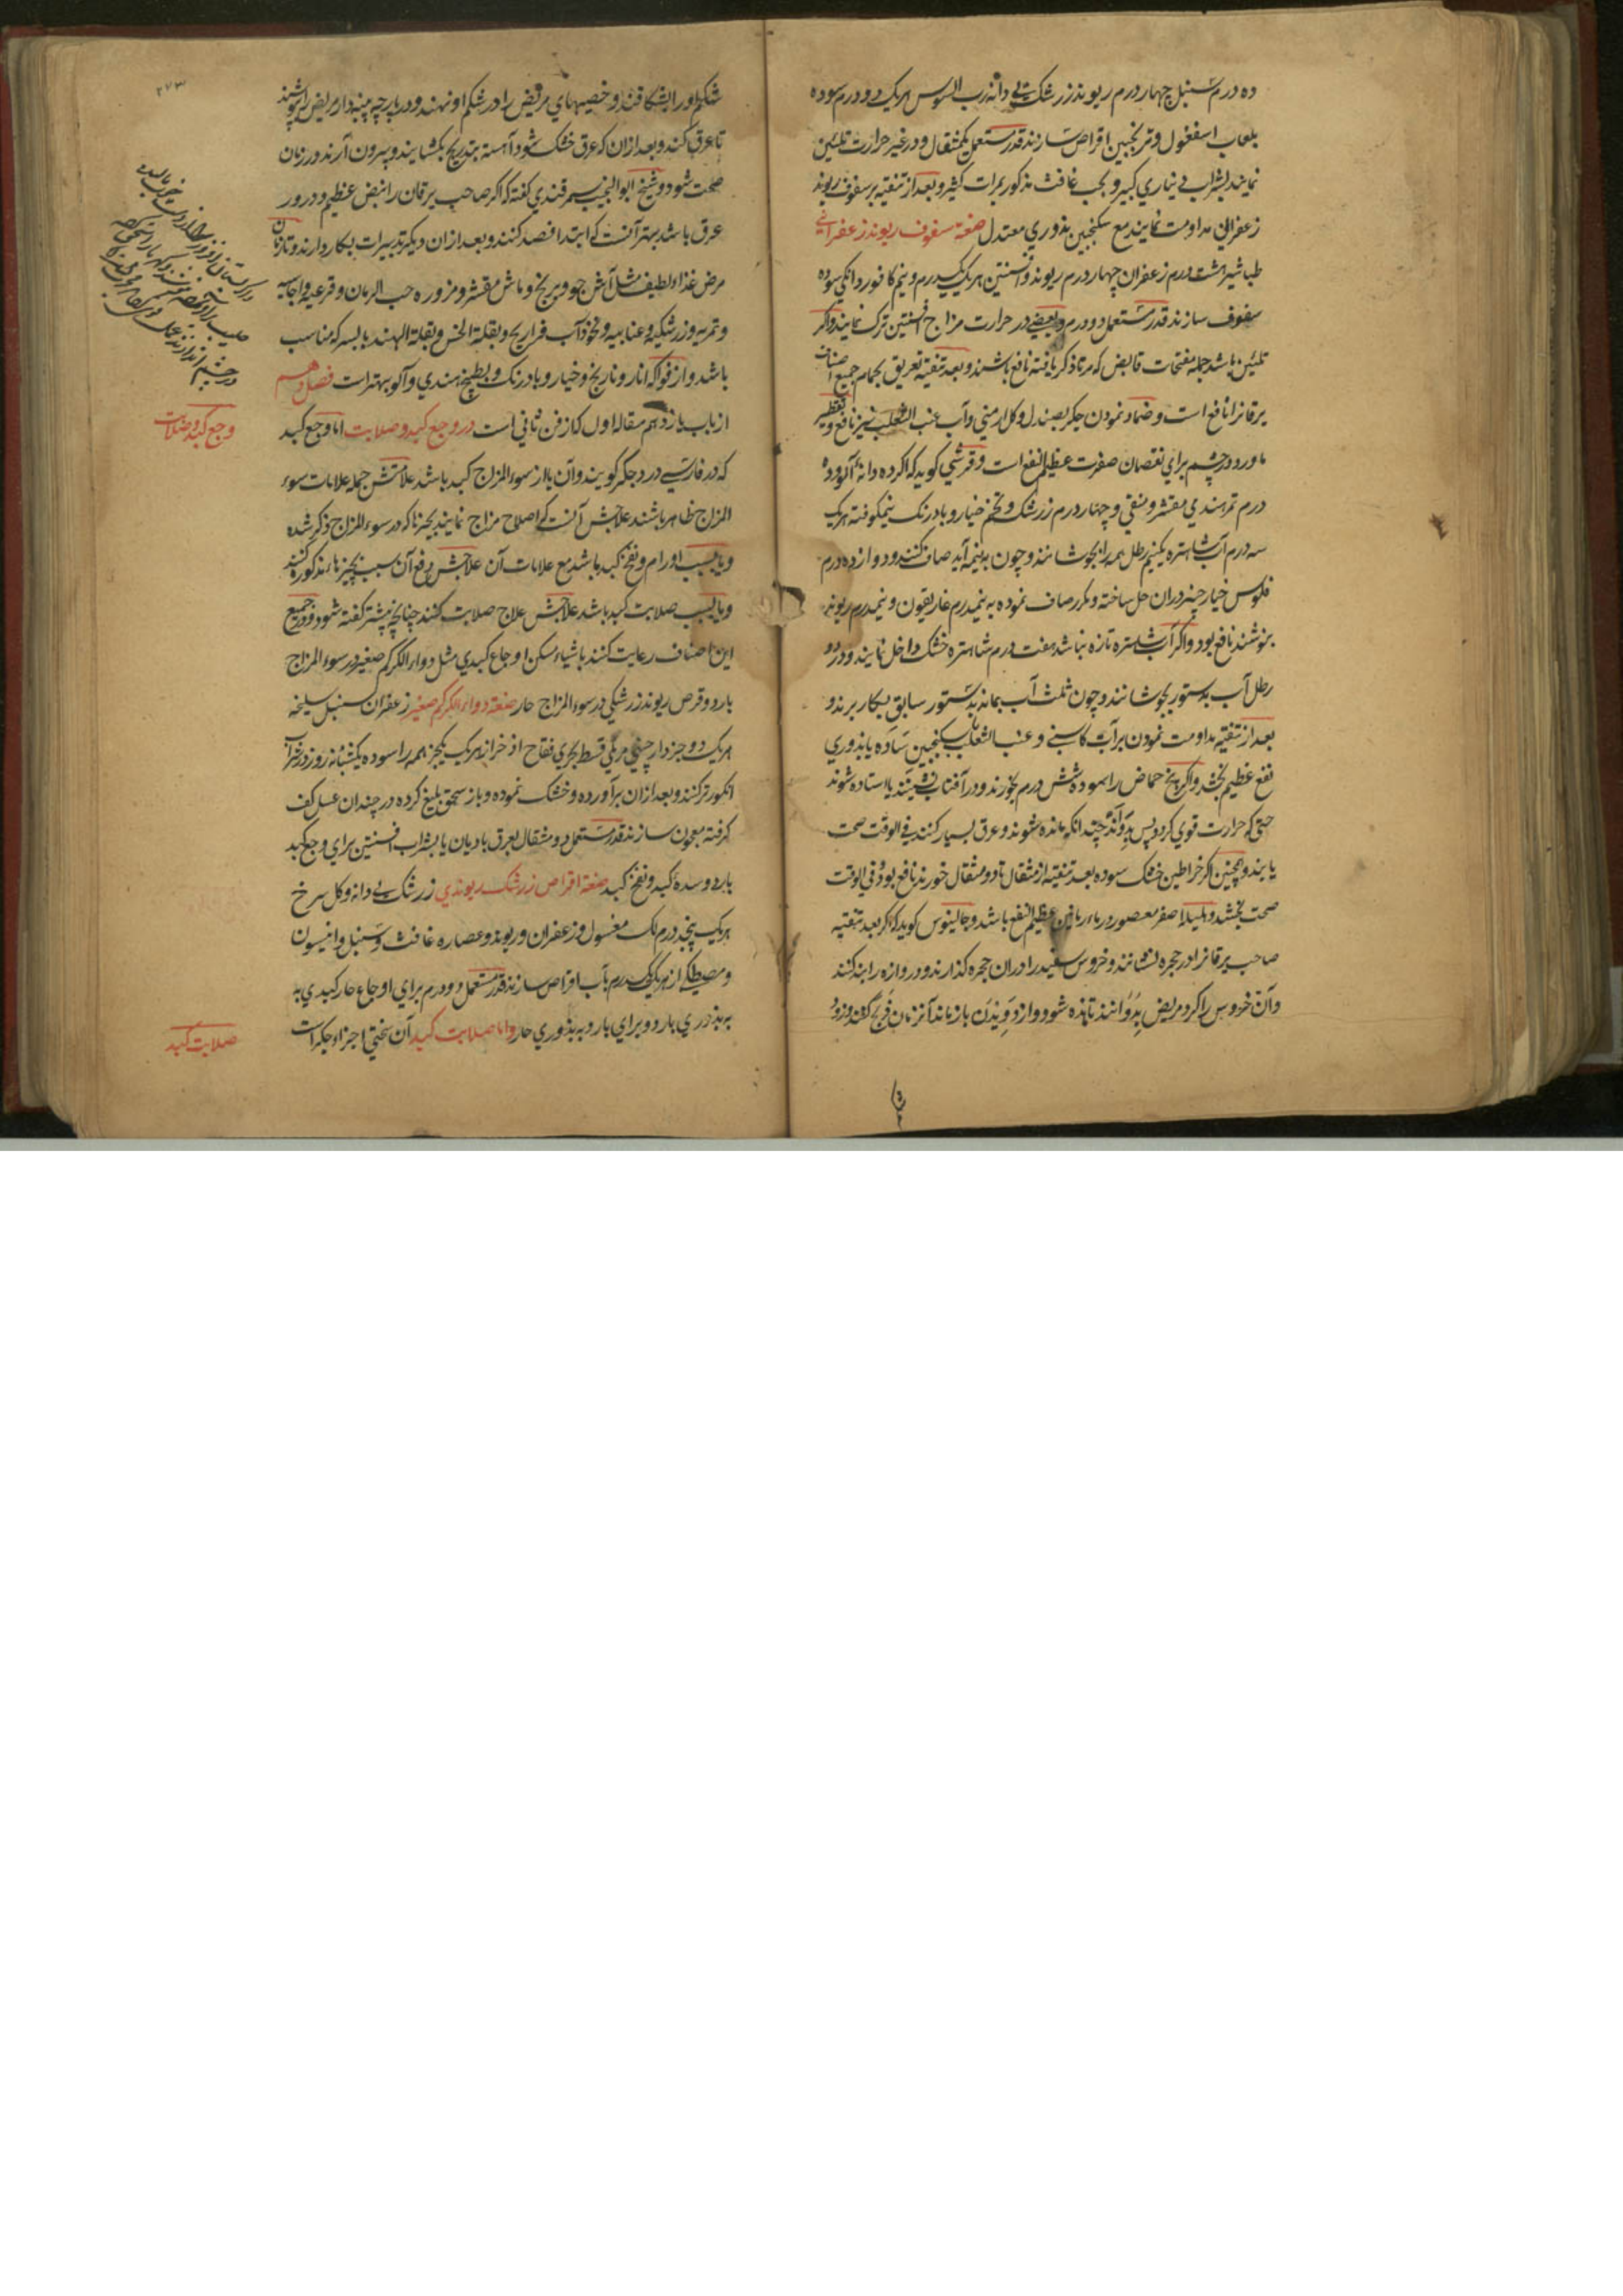 ده درم سنبل چهار درم ریوند زرشک بی دانه رب السوس هریک دو درم سوده
بلعاب اسفغول و ترنجبین اقراص سازند قدر مستعمل یکمثقال و در غیر حرارت تلئین
نمایند بشراب دیناری کبیر و بحب غافث مذکور بمرات کثیر و بعد از تنقیه بر سفوف ریوند
زعفرانی مداومت نمایند مع سکنجبین بذوری معتدل صفة سفوف ریوند زعفرانی
طباشیر هشت درم زعفران چهار درم ریوند و افسنتین هریک یکدرم و نیم کافور دانکی سوده
سفوف سازند قدر مستعمل دو درم و بعضی در حرارت مزاج افسنتین ترک نمایند و اکر
تلئین باشد جمله مفتحات قابض که مرتا ذکر یافته نافع باشند و بعد تنقیه تعریق بحمام جمیع اصناف
یرقانرا نافع است و ضماد نمودن جکر بصندل و کل ارمنی و آب عنب الثعلب نیز نافع و تقطیر
ماورد در چشم برای نقصان صفرت عظیم النفع است و قرشی کوید که اکر ده دانه آلو و ده
درم تمر هندی مقشر و منقی و چهار درم زرشک و تخم خیار و بادرنک نیمکوفته هریک
سه درم آب شاهتره یکنیم رطل همه را بجوشانند و چون بنیمه آید صاف کنند و دوازده درم
فلوس خیارچنبر دران حل ساخته و مکرر صاف نموده به نیمدرم غاریقون و نیمدرم ریوند
بنوشند نافع بود و اکر آب شاهتره تازه نباشد هفت درم شاهتره خشک داخل نمایند و در دو
رطل آب بدستور بجوشانند و چون ثلث آب بماند بدستور سابق بکار برند و
بعد از تنقیه مداومت نمودن بر آب کاسنی و عنب الثعلب بسکنجبین ساده یا بذوری
نفع عظیم بخشد و اکر بیخ حماض را سوده شش درم بخورند و در آفتاب نشینند یا استاده شوند
حتی که حرارت قوی کردد پس بدوند چندانکه مانده شوند و عرق بسیار کنند فی الوقت صحت
یابند و همچنین اکر خراطین خشک سوده بعد تنقیه از مثقال تا دو مثقال خورند نافع بود و فی الوقت
صحت بخشد و هلیله اصفر معصور در ماء رمانین عظیم النفع باشد و جالینوس کوید که اکر بعد تنقیه
صاحب یرقانرا در حجره نشانند و خروس سفید را دران حجره کذارند و دروازه را بند کنند
و آن خروس را کرد مریض بدوانند تا مانده شود و از دویدن باز ماند آنزمان ذبح کنند و زود
شکم او را بشکافند و خصیهای مریض را در شکم او نهند و در پارچه پنبه دار مریض را پوشند
تا عرق کند و بعد ازان که عرق خشک شود آهسته بتدریج بکشایند و بیرون آرند در زمان
صحت شود و شیخ ابو النجیب سمرقندی کفته که اکر صاحب یرقان را نبض عظیم و درور
عرق باشد بهتر آنست که ابتدا فصد کنند و بعد ازان دیکر تدبیرات بکار دارند و تا زمان
مرض غذاء لطیف مثل آش جو و برنج و ماش مقشر و مزوره حب الرمان و قرعیه و اجاصیه
و تمریه و زرشکیه و عنابیه و نخود آب فراریج و بقلة الخس و بقلة الهند با بسرکه مناسب
باشد و از فواکه انار و نارنج و خیار و بادرنک و بطیخ هندی و آلو بهتر است فصل دهم
از باب یازدهم مقاله اول که از فن ثانی است در وجع کبد و صلابت اما وجع کبد
که در فارسی درد جکر کویند و آن یا از سوء المزاج کبد باشد علامتش جمله علامات سوء
المزاج ظاهر باشند علاجش آنست که اصلاح مزاج نمایند بچیزها که در سوء المزاج ذکر شده
و یا بسبب اورام و نفخ کبد باشد مع علامات آن علاجش رفع آن سبب بچیزهاء مذکوره کنند
و یا بسبب صلابت کبد باشد علاجش علاج صلابت کنند چنانچه پیشتر کفته شود و در جمیع
این اصناف رعایت کنند باشیاء مسکن اوجاع کبدی مثل دواء الکرکم صغیر در سوء المزاج
بارد و قرص ریوند زرشکی در سوء المزاج حار صفة دواء الکرکم صغیر زعفران سنبل سلیخه
هریک دو جز دارچینی مر مکی قسط بحری فقاح اذخر از هریک یکجز همه را سوده یکشبانه روز در شراب
انکور تر کنند و بعد ازان برآورده و خشک نموده و باز سحق بلیغ کرده در چندان عسل کف
کرفته معجون سازند قدر مستعمل دو مثقال بعرق بادیان یا بشراب افسنتین برای وجع کبد
بارد و سده کبد و نفخ کبد صفة اقراص زرشک ریوندی زرشک بی دانه و کل سرخ
هریک پنجدرم لک مغسول و زعفران و ریوند و عصاره غافث و سنبل و انیسون
و مصطکی از هریک یکدرم بآب اقراص سازند قدر مستعمل دو درم برای اوجاع حار کبدی به
به بذوری بارد و برای بارد به بذوری حار و اما صلابت کبد آن سختی اجزاء جکر است
وجع کبد و صلابت
صلابت کبد
۲۷۳